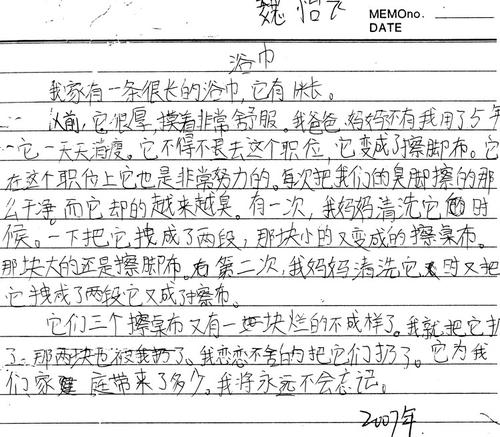 魏怡
MEMOno.
DATE
浴巾
我家有一条很长的浴巾,它有1米长。
以前,它很厚,摸着非常舒服。我爸爸、妈妈还有我用了5年
它一天天消瘦。它不得不退去这个职位,它变成了擦脚布。它
在这个职位上它也是非常努力的。每次把我们的臭脚擦的那
么干净,而它却的越来越臭。有一次,我妈妈清洗它的时
候。一下把它拽成了两段,那块小的又变成的擦桌布。
那块大的还是擦脚布。第二次,我妈妈清洗它时又把
它拽成了两段它又成了擦布。
它们三个擦桌布又有一块烂的不成样了。我就把它扔
了,那两块也被我扔了、我恋恋不舍的把它们扔了。它为我
们家庭带来了多少。我将永远不会忘记。
2007年